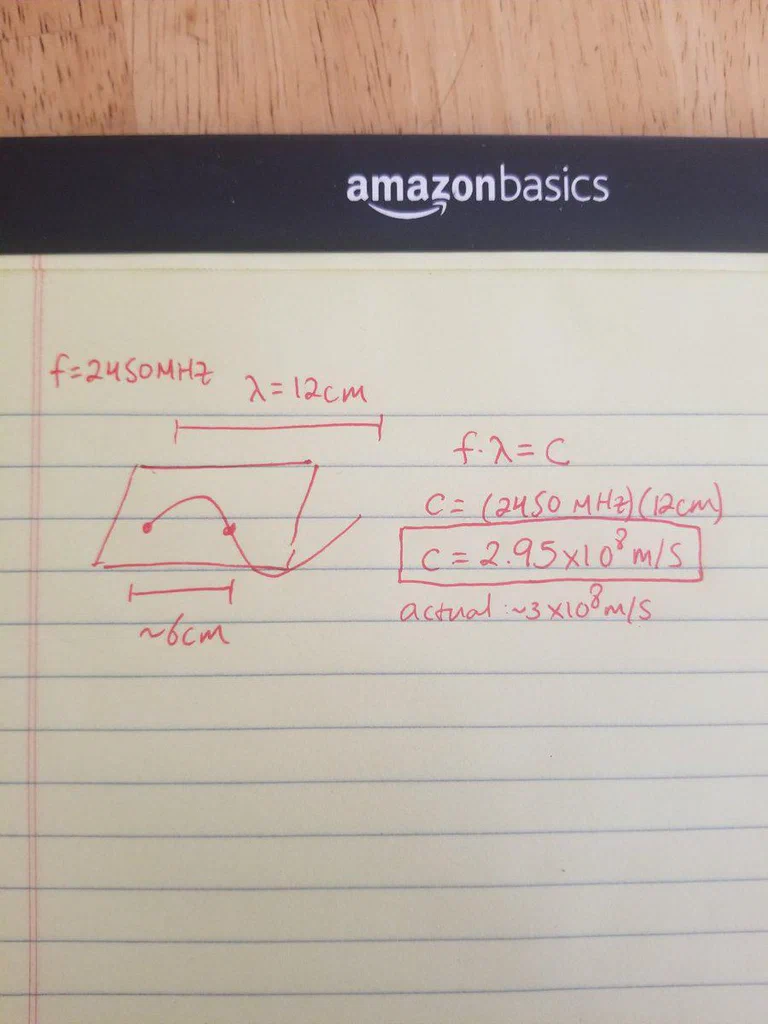 amazonbasics
f=2450MHz
λ=12cm
~6cm
f·λ=C
C=(2450 MHz)(12cm)
C=2.95x10⁸m/s
actual:~3x10⁸m/s